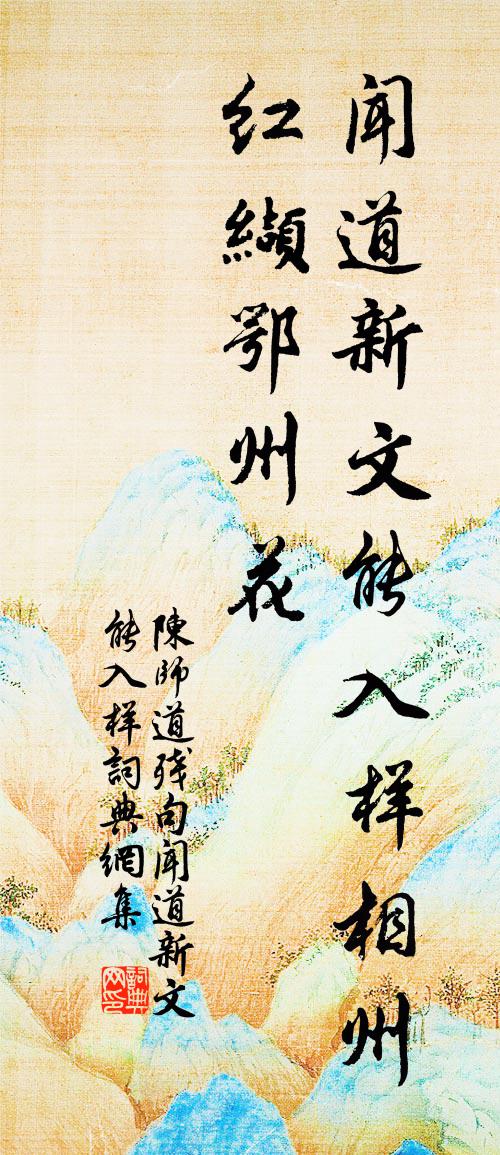 闻道新文能入样相州
红缬鄂州花
陳師道残句闻道新文
能入样詞典網集
詞典网印